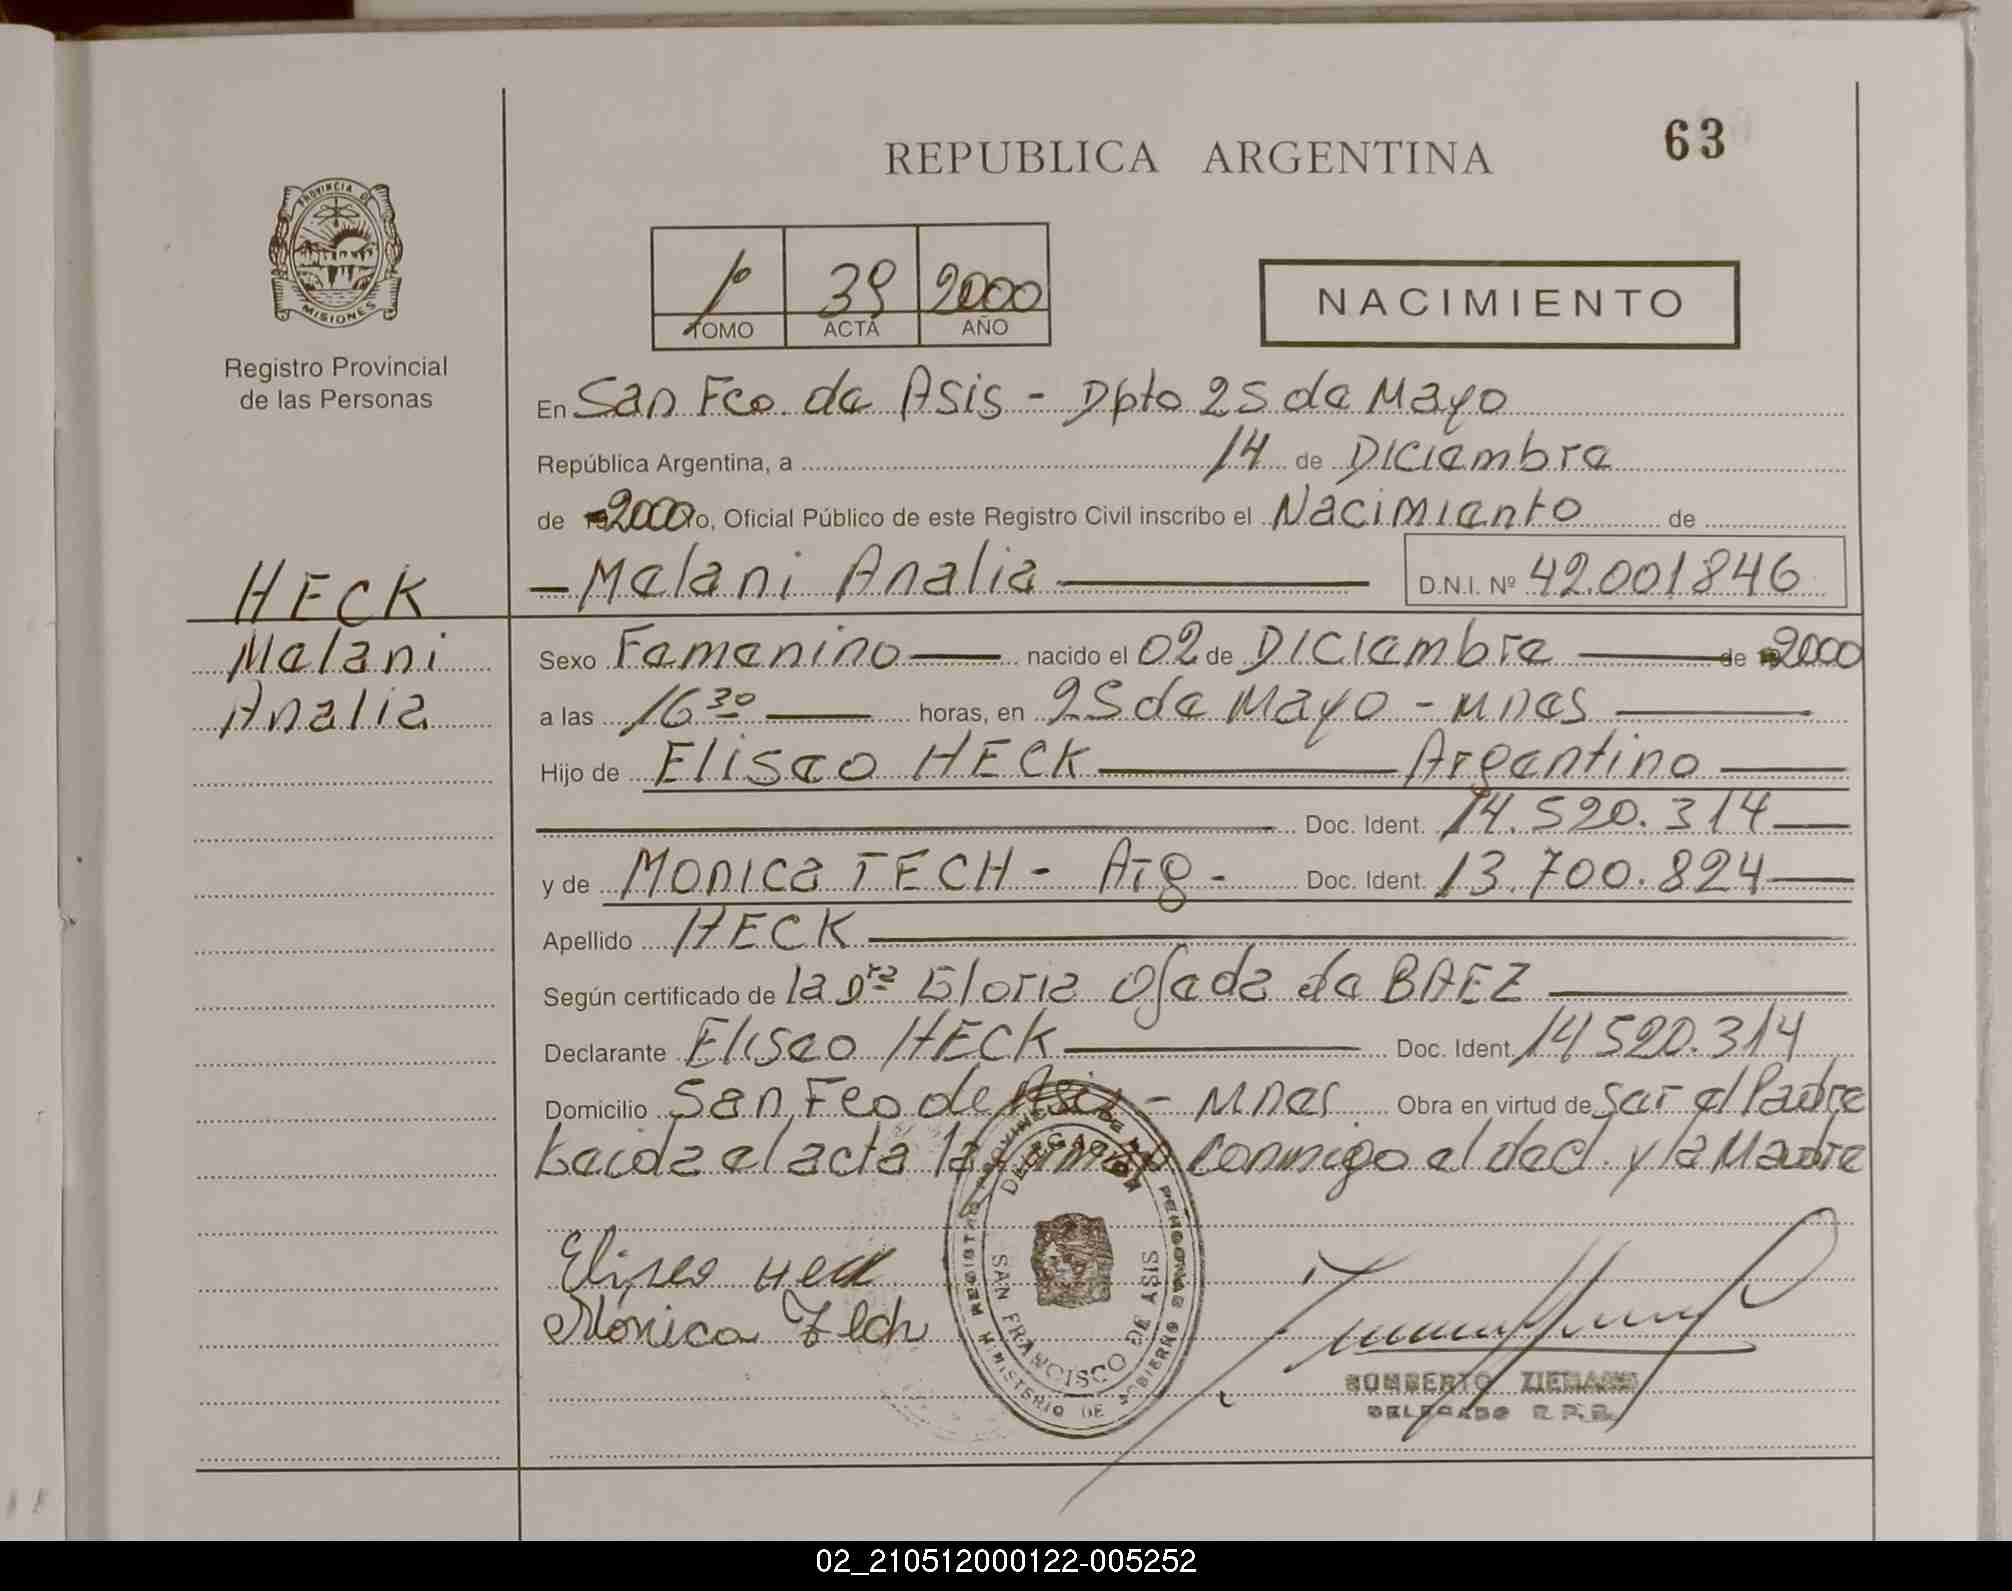 63
REPUBLICA ARGENTINA
PROVINCIA DE
MISIONES
Registro Provincial
de las Personas
1º 39 2000
TOMO ACTA AÑO
NACIMIENTO
En San Fco. de Asis - Dpto 25 de Mayo
República Argentina, a 14 de Diciembre
de 2000 yo, Oficial Público de este Registro Civil inscribo el Nacimiento de
HECK
Melani
Analia
- Melani Analia D.N.I. Nº 42.001846
Sexo Femenino nacido el 02 de Diciembre de 2000
a las 16 30 horas, en 25 de Mayo - Mnes
Hijo de Eliseo HECK Argentino
Doc. Ident. 14.520.314
y de Monica TECH - Arg - Doc. Ident. 13.700.824
Apellido HECK
Según certificado de la Dra Gloria Ojeda de BAEZ
Declarante Eliseo HECK Doc. Ident. 14520.314
Domicilio San Fco de Asis - Mnes Obra en virtud de ser el Padre
Leida el acta la firman conmigo el decl. y la Madre
Eliseo Heck
Monica Tech
DELEGACION
SAN FRANCISCO DE ASIS
MINISTERIO DE GOBIERNO
DELEGADO R.P.P.
02_210512000122-005252